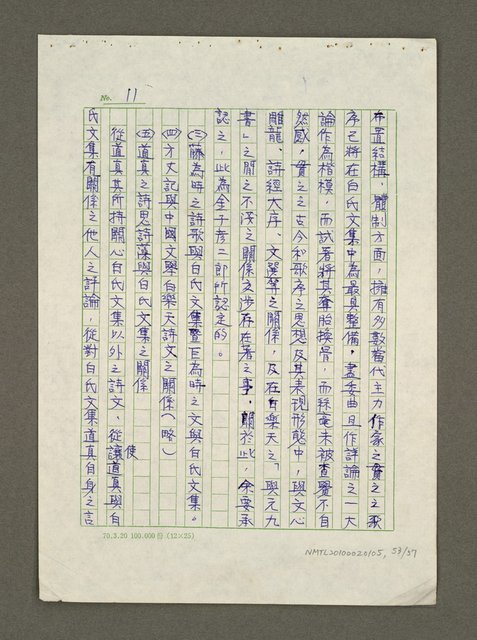 No. 11
布置結構、體制方面，擁有多數當代主力作家之貫之之歌
序已將在白氏文集中為最具整備，盡委曲且作評論之一大
論作為楷模，而試著將其奪胎換骨，而絲毫未被查覺不自
然感，貫之之古今和歌序之思想及其表現形態中，與文心
雕龍、詩經大序、文選等之關係，及在白樂天之「與元九
書」之間之不淺之關係交涉存在著之事，關於此，余要承
認之，此為金子彦二郎所認定的。
㈢藤為時之詩歌與白氏文集暨巨為時之文與白氏文集。
㈣方丈記與中國文學白樂天詩文之關係（略）
㈤道真之詩思詩藻與白氏文集之關係
從道真其所持關心白氏文集以外之詩文、從讓道真與白
使
氏文集有關係之他人之評論，從對白氏文集道真自身之言
70.3.20 100.000份 (12×25)
NMTL20100020105, 53/57